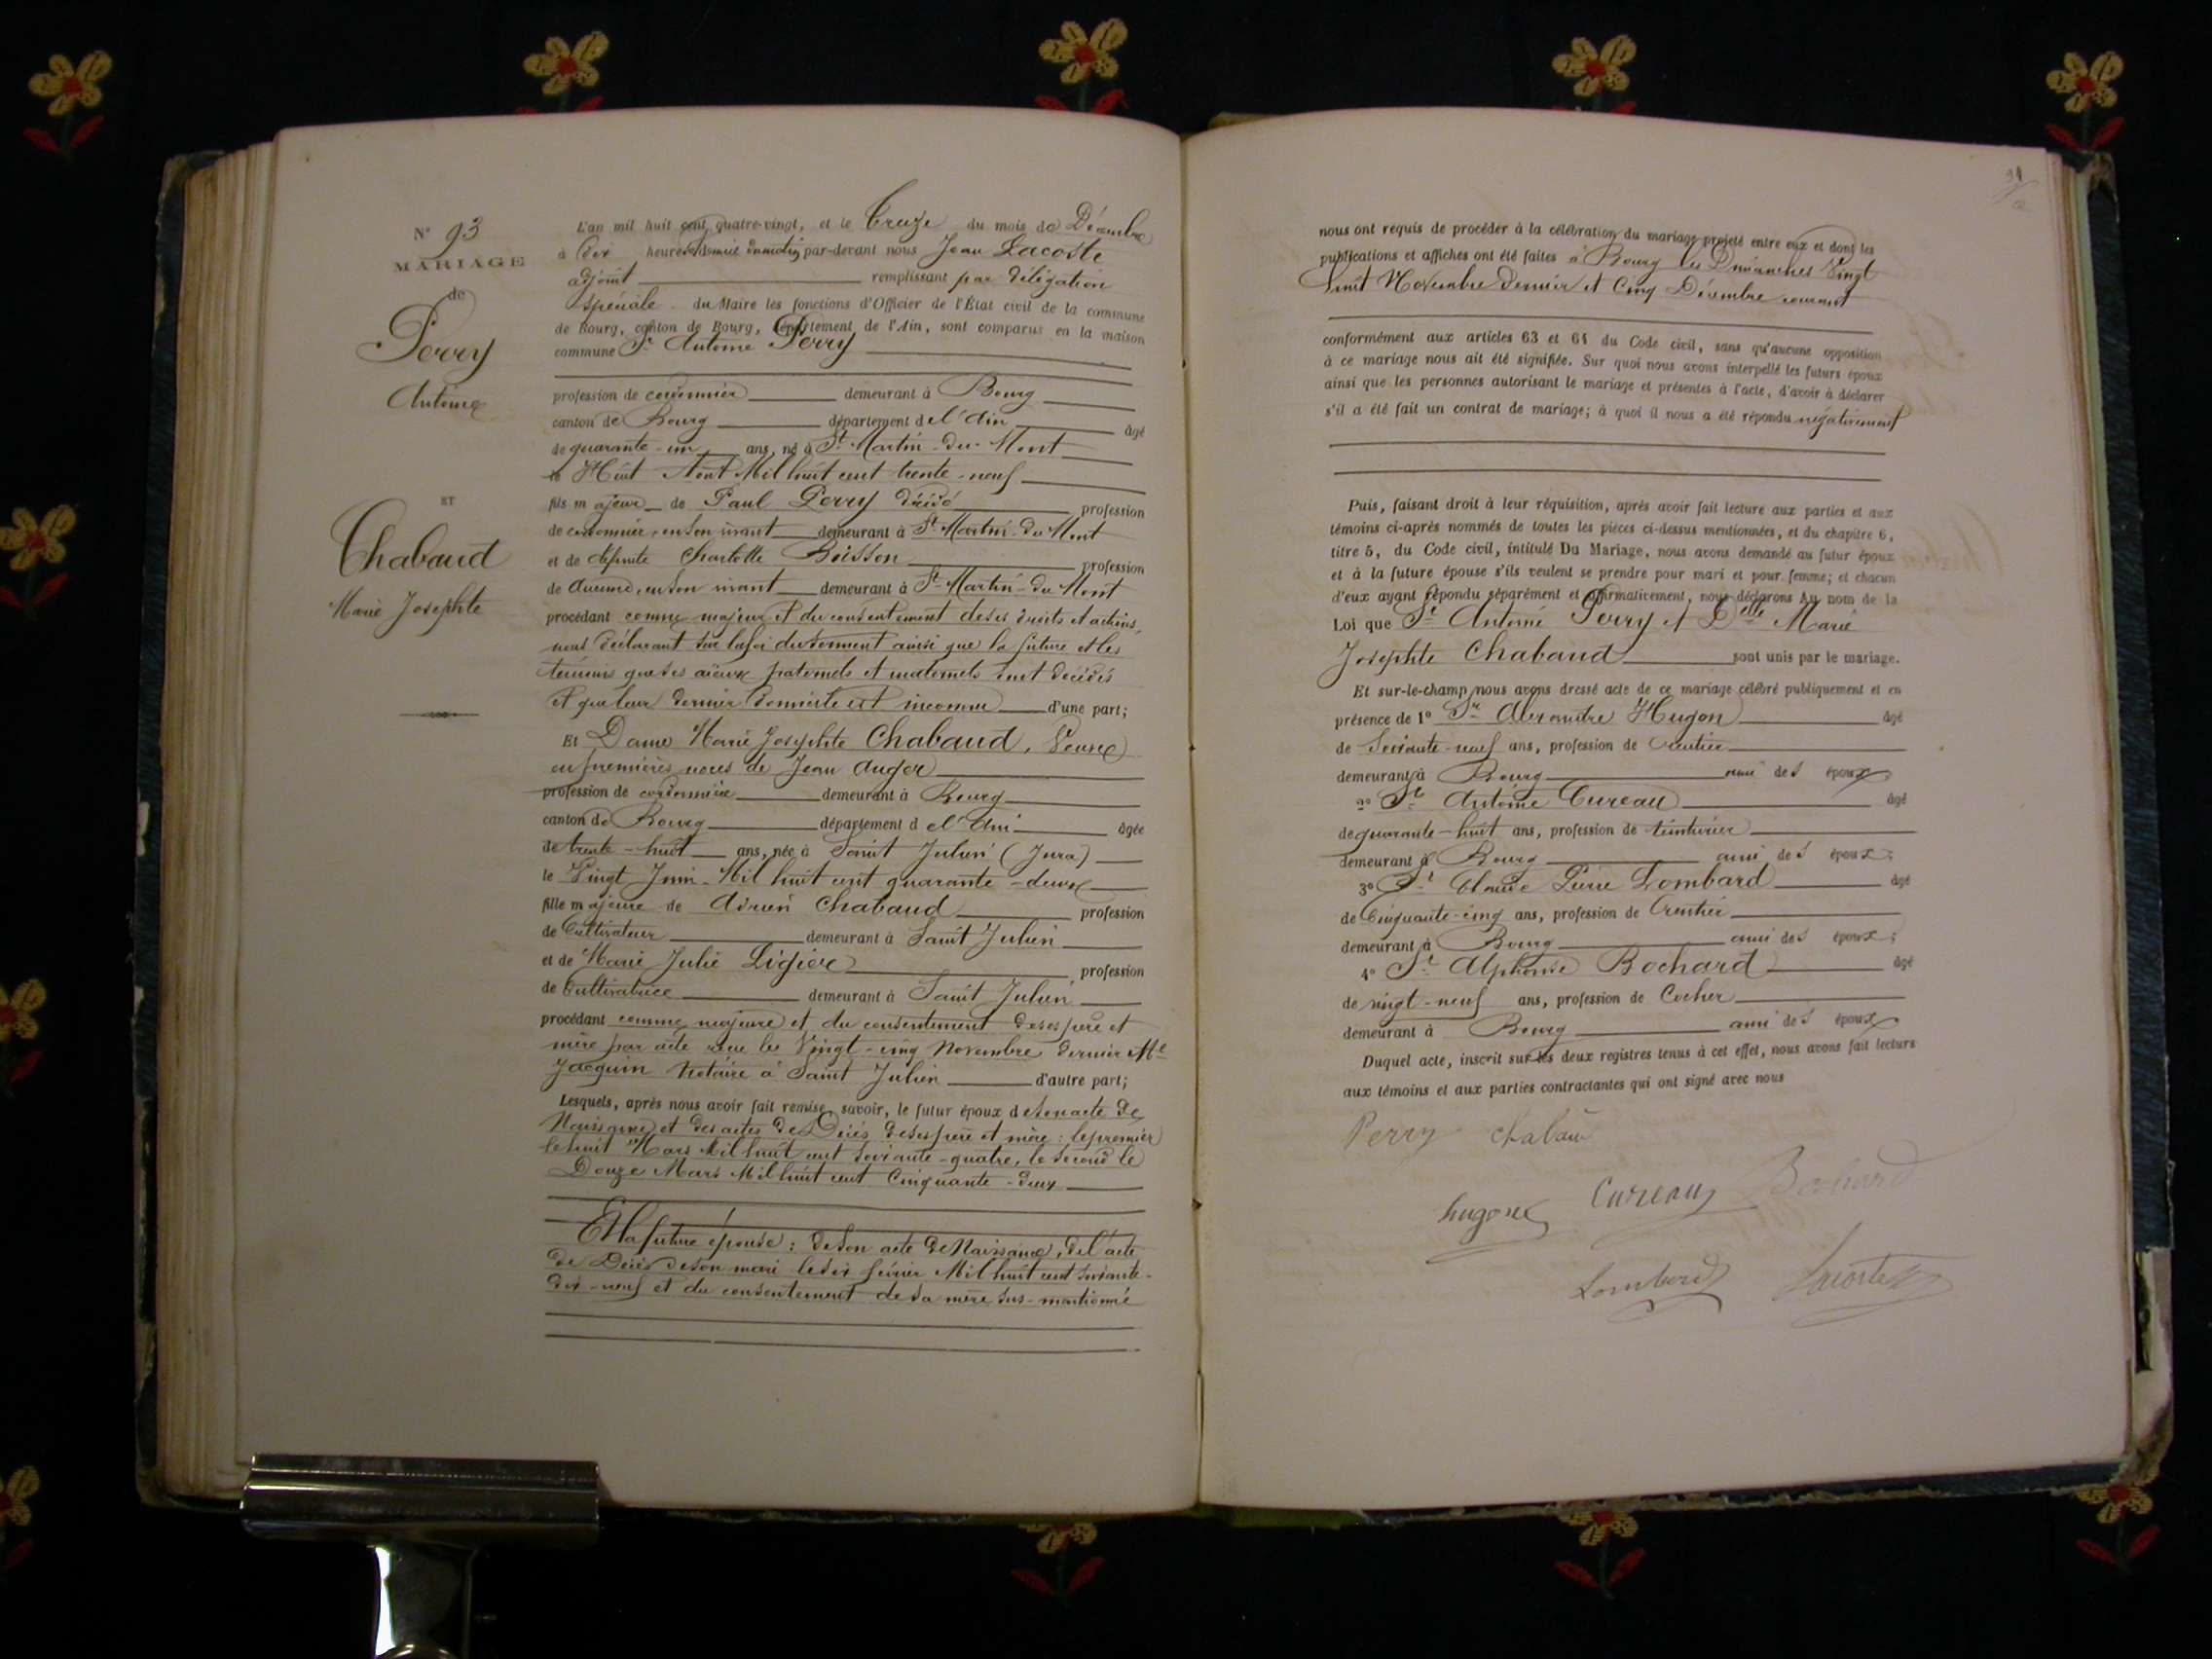 N° 93
MARIAGE
de
Perry
Antoine
ET
Chabaud
Marie Josephte
L'an mil huit cent quatre-vingt, et le Treize du mois de Décembre
à dix heures & demie du matin par-devant nous Jean Lacoste
adjoint remplissant par délégation
spéciale du Maire les fonctions d'Officier de l'État civil de la commune
de Bourg, canton de Bourg, département de l'Ain, sont comparus en la maison
commune Sr Antoine Perry
profession de cordonnier demeurant à Bourg
canton de Bourg département de l'Ain âgé
de quarante-un ans, né à St Martin-du-Mont
le Huit Août Mil huit cent trente-neuf
fils majeur de Paul Perry décédé profession
de cordonnier, en son vivant demeurant à St Martin-du Mont
et de défunte Charlotte Boisson profession
de aucune, en son vivant demeurant à St Martin-du Mont
procédant comme majeur et du consentement de ses droits et actions,
nous déclarant sur la foi du serment ainsi que la future et les
témoins que ses aïeux paternels et maternels sont décédés
et que leur dernier domicile est inconnu d'une part;
Et Dame Marie Josephte Chabaud, Veuve
en premières noces de Jean Auger
profession de cordonnière demeurant à Bourg
canton de Bourg département de l'Ain âgée
de trente-huit ans, née à Saint Julien (Jura)
le Vingt Juin Mil huit cent quarante-deux
fille majeure de Adrien Chabaud profession
de Cultivateur demeurant à Saint Julien
et de Marie Julie Ligier profession
de Cultivatrice demeurant à Saint Julien
procédant comme majeure et du consentement de ses père et
mère par acte reçu le Vingt-cinq Novembre dernier Me
Jacquin Notaire à Saint Julien d'autre part;
Lesquels, après nous avoir fait remise, savoir, le futur époux de son acte de
Naissance et des actes de Décès de ses père et mère: le premier
le huit Mars Mil huit cent soixante-quatre, le second le
Douze Mars Mil huit cent Cinquante-deux
Et la future épouse: de son acte de Naissance, de l'acte
de Décès de son mari le dix février Mil huit cent soixante-
dix-neuf et du consentement de sa mère sus-mentionné
nous ont requis de procéder à la célébration du mariage projeté entre eux et dont les
publications et affiches ont été faites à Bourg les Dimanches Vingt
huit Novembre dernier et Cinq Décembre courant
conformément aux articles 63 et 64 du Code civil, sans qu'aucune opposition
à ce mariage nous ait été signifiée. Sur quoi nous avons interpellé les futurs époux
ainsi que les personnes autorisant le mariage et présentes à l'acte, d'avoir à déclarer
s'il a été fait un contrat de mariage; à quoi il nous a été répondu négativement
Puis, faisant droit à leur réquisition, après avoir fait lecture aux parties et aux
témoins ci-après nommés de toutes les pièces ci-dessus mentionnées, et du chapitre 6,
titre 5, du Code civil, intitulé Du Mariage, nous avons demandé au futur époux
et à la future épouse s'ils veulent se prendre pour mari et pour femme; et chacun
d'eux ayant répondu séparément et affirmativement, nous déclarons Au nom de la
Loi que Sr Antoine Perry et Delle Marie
Josephte Chabaud sont unis par le mariage.
Et sur-le-champ nous avons dressé acte de ce mariage célébré publiquement et en
présence de 1° Sr Alexandre Hugon âgé
de Soixante-neuf ans, profession de rentier
demeurant à Bourg ami des époux
2° Sr Antoine Cureau âgé
de quarante-huit ans, profession de teinturier
demeurant à Bourg ami des époux;
3° Sr Claude Pierre Lombard âgé
de Cinquante-cinq ans, profession de rentier
demeurant à Bourg ami des époux;
4° Sr Alphonse Bochard âgé
de vingt-neuf ans, profession de Cocher
demeurant à Bourg ami des époux
Duquel acte, inscrit sur les deux registres tenus à cet effet, nous avons fait lecture
aux témoins et aux parties contractantes qui ont signé avec nous
Perry Chabau
hugon Cureau Bochard
Lombard Lacoste